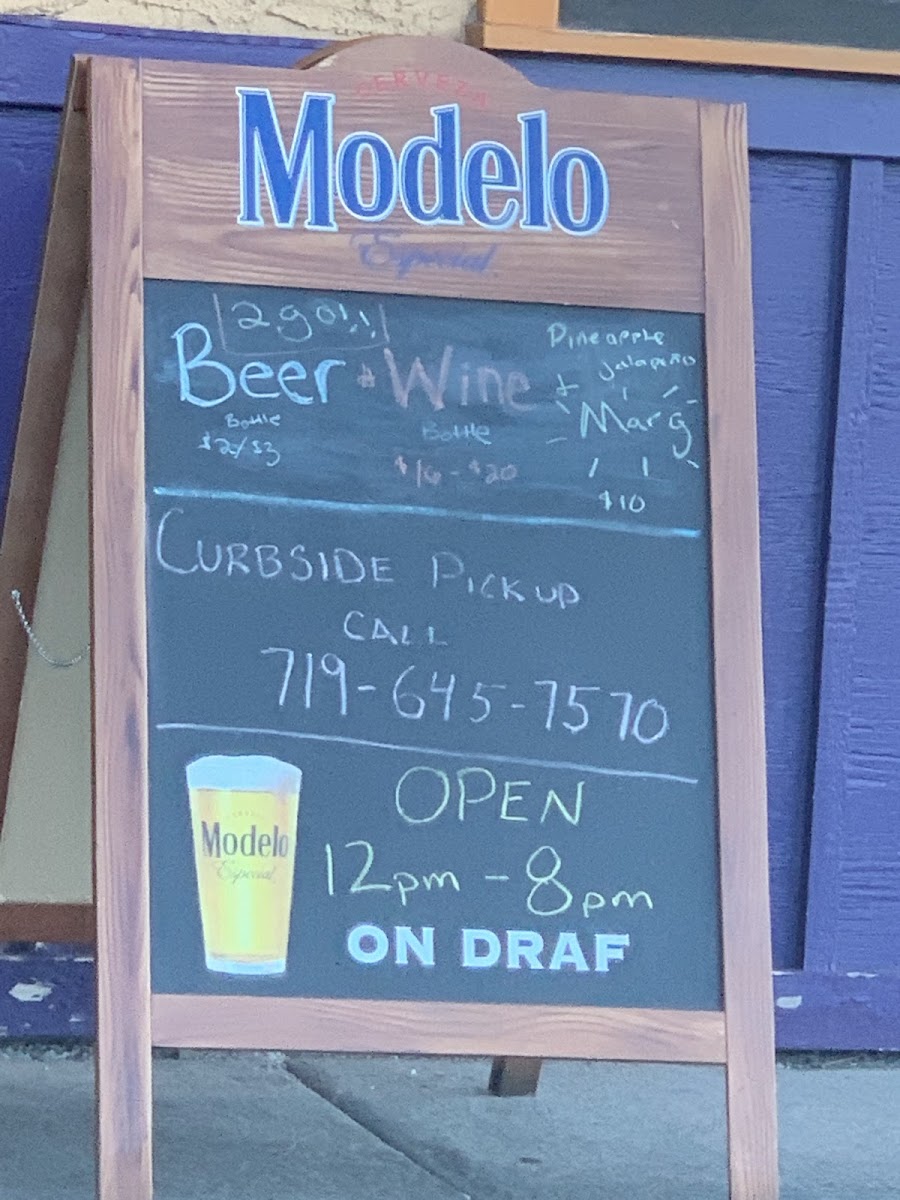 CERVEZA
Modelo
Especial
2go!!
Beer & Wine +
Bottle
$2/$3
Bottle
$16-$20
Pineapple
Jalapeño
Marg
$10
CURBSIDE PICKUP
CALL
719-645-7570
OPEN
12pm - 8pm
ON DRAF
Modelo
Especial